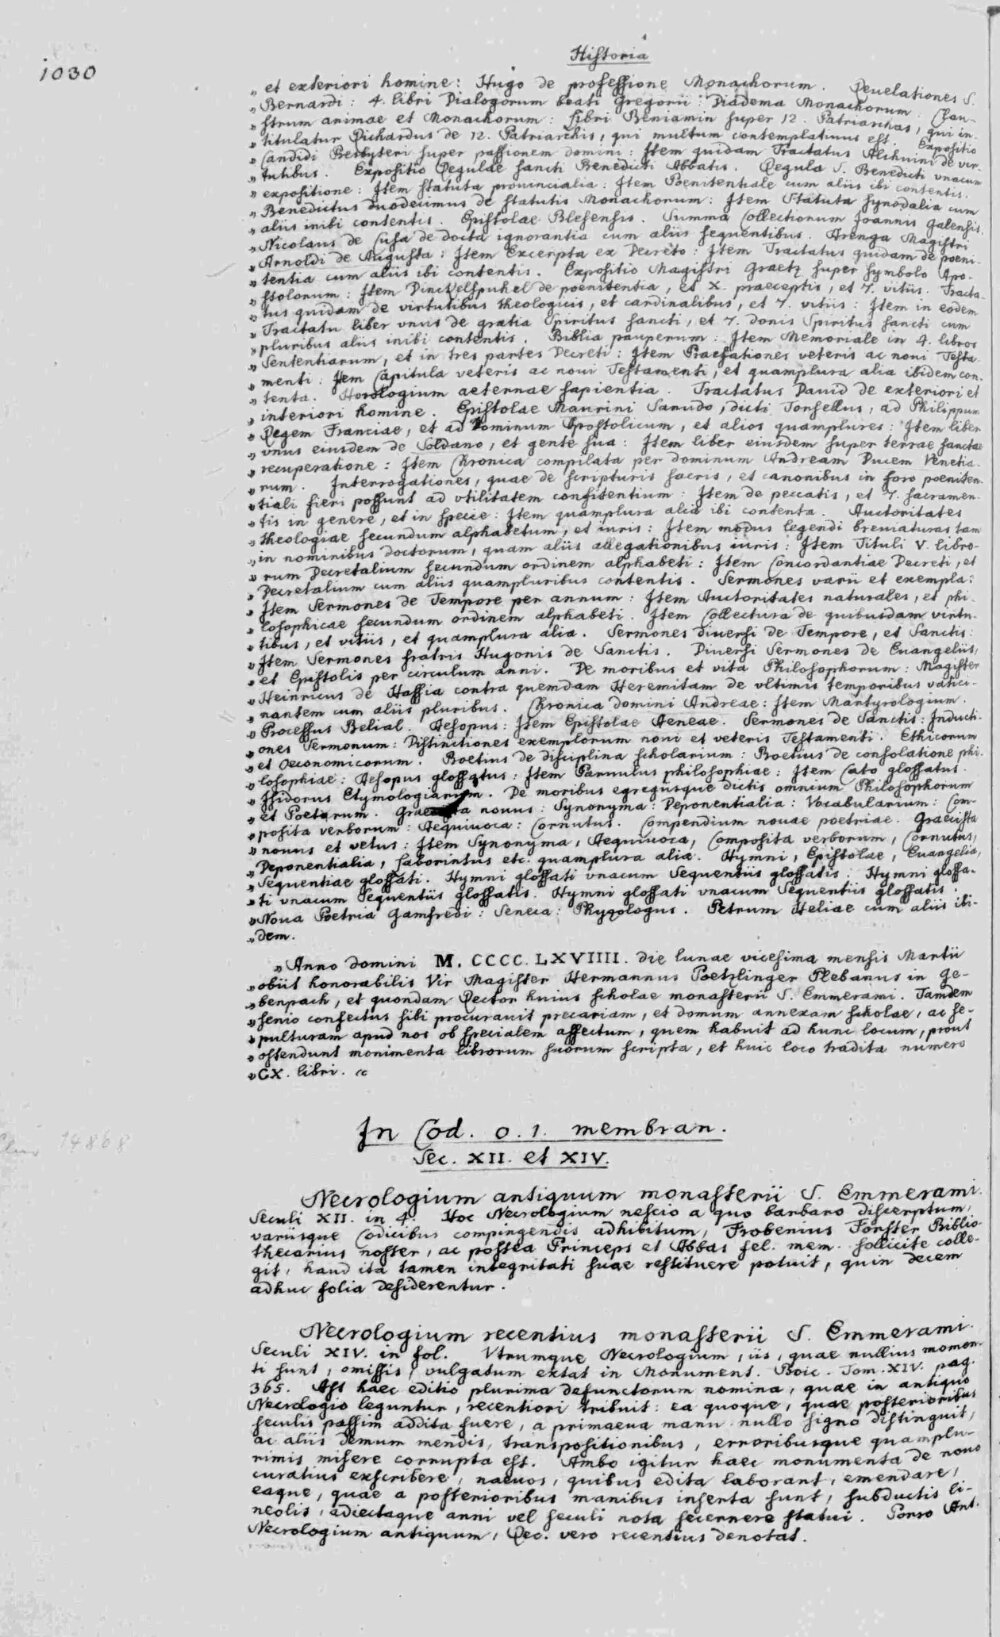 1030
Historia
„ et exteriori homine: Hugo de professione Monachorum. Reuelationes S.
„ Bernardi: 4. libri Dialogorum beati Gregorii: Diadema Monachorum: Clau-
„ strum animae et Monachorum: Libri Beniamin super 12. Patriarchas, qui in-
„ titulatur Richardus de 12. Patriarchis, qui multum contemplatiuus est. Expositio
„ Candidi Presbyteri super passionem domini: Item quidam Tractatus Alchuini de vir-
„ tutibus. Expositio Regulae sancti Benedicti Abbatis. Regula S. Benedicti vnacum
„ expositione: Item statuta prouincialia: Item Poenitentiale cum aliis ibi contentis.
„ Benedictus duodecimus de statutis Monachorum: Item Statuta synodalia cum
„ aliis inibi contentis. Epistolae Blesensis. Summa Collectionum Joannis Galensis.
„ Nicolaus de Cusa de docta ignorantia cum aliis sequentibus. Arenga Magistri
„ Arnoldi de Augusta: Item Excerpta ex Decreto: Item Tractatus quidam de poeni-
„ tentia cum aliis ibi contentis. Expositio Magistri Graetz super Symbolo Apo-
„ stolorum: Item Dinckelspuhel de poenitentia, et X. praeceptis, et 7. vitiis. Tracta-
„ tus quidam de virtutibus theologicis, et cardinalibus, et 7. vitiis: Item in eodem
„ Tractatu liber vnus de gratia Spiritus sancti, et 7. donis Spiritus sancti cum
„ pluribus aliis inibi contentis. Biblia pauperum: Item Memoriale in 4. libros
„ Sententiarum, et in tres partes Decreti: Item Praefationes veteris ac noui Testa-
„ menti: Item Capitula veteris ac noui Testamenti, et quamplura alia ibidem con-
„ tenta. Horologium aeternae sapientia. Tractatus Dauid de exteriori et
„ interiori homine. Epistolae Maurini Sanudo, dicti Torsellus, ad Philippum
„ Regem Franciae, et ad Dominum Apostolicum, et alios quamplures: Item liber
„ vnus eiusdem de Soldano, et gente sua: Item liber eiusdem super terrae sanctae
„ recuperatione: Item Chronica compilata per dominum Andream Ducem Venetia-
„ rum. Interrogationes, quae de scripturis sacris, et canonibus in foro poeniten-
„ tiali fieri possunt ad vtilitatem confitentium: Item de peccatis, et 7. sacramen-
„ tis in genere, et in specie: Item quamplura alia ibi contenta. Auctoritates
„ theologiae secundum alphabetum, et iuris: Item modus legendi breuiaturas tam
„ in nominibus doctorum, quam aliis allegationibus iuris: Item Tituli V. libro-
„ rum Decretalium secundum ordinem alphabeti: Item Concordantiae Decreti, et
„ Decretalium cum aliis quampluribus contentis. Sermones varii et exempla:
„ Item Sermones de Tempore per annum: Item Auctoritates naturales, et phi-
„ losophicae secundum ordinem alphabeti. Item Collectura de quibusdam virtu-
„ tibus, et vitiis, et quamplura alia. Sermones diuersi de Tempore, et Sanctis:
„ Item Sermones fratris Hugonis de Sanctis. Diuersi Sermones de Euangeliis,
„ et Epistolis per circulum anni. De moribus et vita Philosophorum: Magister
„ Heinricus de Hassia contra quemdam Heremitam de vltimis temporibus vatici-
„ nantem cum aliis pluribus. Chronica domini Andreae: Item Martyrologium.
„ Processus Belial. Aesopus: Item Epistolae Aeneae. Sermones de Sanctis: Inducti-
„ ones Sermonum: Distinctiones exemplorum noui et veteris Testamenti. Ethicorum
„ et Oeconomicorum. Boetius de disciplina scholarium: Boetius de consolatione phi-
„ losophiae: Aesopus glossatus: Item Paruulus philosophiae: Item Cato glossatus.
„ Isidorus Etymologiarum. De moribus egregiisque dictis omnium Philosophorum
„ et Poetarum. Graecista nouus: Synonyma: Deponentialia: Vocabularium: Com-
„ posita verborum: Aequiuoca: Cornutus. Compendium nouae poetriae. Graecista
„ nouus et vetus: Item Synonyma, Aequiuoca, Composita verborum, Cornutus,
„ Deponentialia, Laborintus etc. quamplura alia. Hymni, Epistolae, Euangelia,
„ Sequentiae glossati. Hymni glossati vnacum Sequentiis glossatis. Hymni glossa-
„ ti vnacum Sequentiis glossatis. Hymni glossati vnacum Sequentiis glossatis.
„ Noua Poetria Gamfredi: Seneca: Physologus. Petrum Heliae cum aliis ibi-
„ dem.
„ Anno domini M. CCCC. LXVIIII. die lunae vicesima mensis Martii
„ obiit honorabilis Vir Magister Hermannus Poetzlinger Plebanus in Ge-
„ benpach, et quondam Rector huius scholae monasterii S. Emmerami. Tandem
„ senio confectus sibi procurauit precariam, et domum annexam scholae, ac se-
„ pulturam apud nos ob specialem affectum, quem habuit ad hunc locum, prout
„ ostendunt monimenta librorum suorum scripta, et huic loco tradita numero
„ CX. libri. «
In Cod. o. 1. membran.
Sec. XII. et XIV.
14868
Necrologium antiquum monasterii S. Emmerami.
Seculi XII. in 4. Hoc Necrologium nescio a quo barbaro discerptum,
variisque Codicibus compingendis adhibitum, Frobenius Forster Biblio-
thecarius noster, ac postea Princeps et Abbas fel. mem. sollicite colle-
git, haud ita tamen integritati suae restituere potuit, quin decem
adhuc folia desiderentur.
Necrologium recentius monasterii S. Emmerami.
Seculi XIV. in fol. Vtrumque Necrologium, iis, quae nullius momen-
ti sunt, omissis, vulgatum extat in Monument. Boic. Tom. XIV. pag.
365. Ast haec editio plurima defunctorum nomina, quae in antiquo
Necrologio leguntur, recentiori tribuit: ea quoque, quae posterioribus
seculis passim addita fuere, a primaeua manu nullo signo distinguit,
ac aliis demum mendis, transpositionibus, erroribusque quamplu-
rimis misere corrupta est. Ambo igitur haec monumenta de nouo
curatius exscribere, naeuos, quibus edita laborant, emendare,
eaque, quae a posterioribus manibus inserta sunt, subductis li-
neolis, adiectaque anni vel seculi nota secernere statui. Porro Ant.
Necrologium antiquum, Rec. vero recentius denotat.